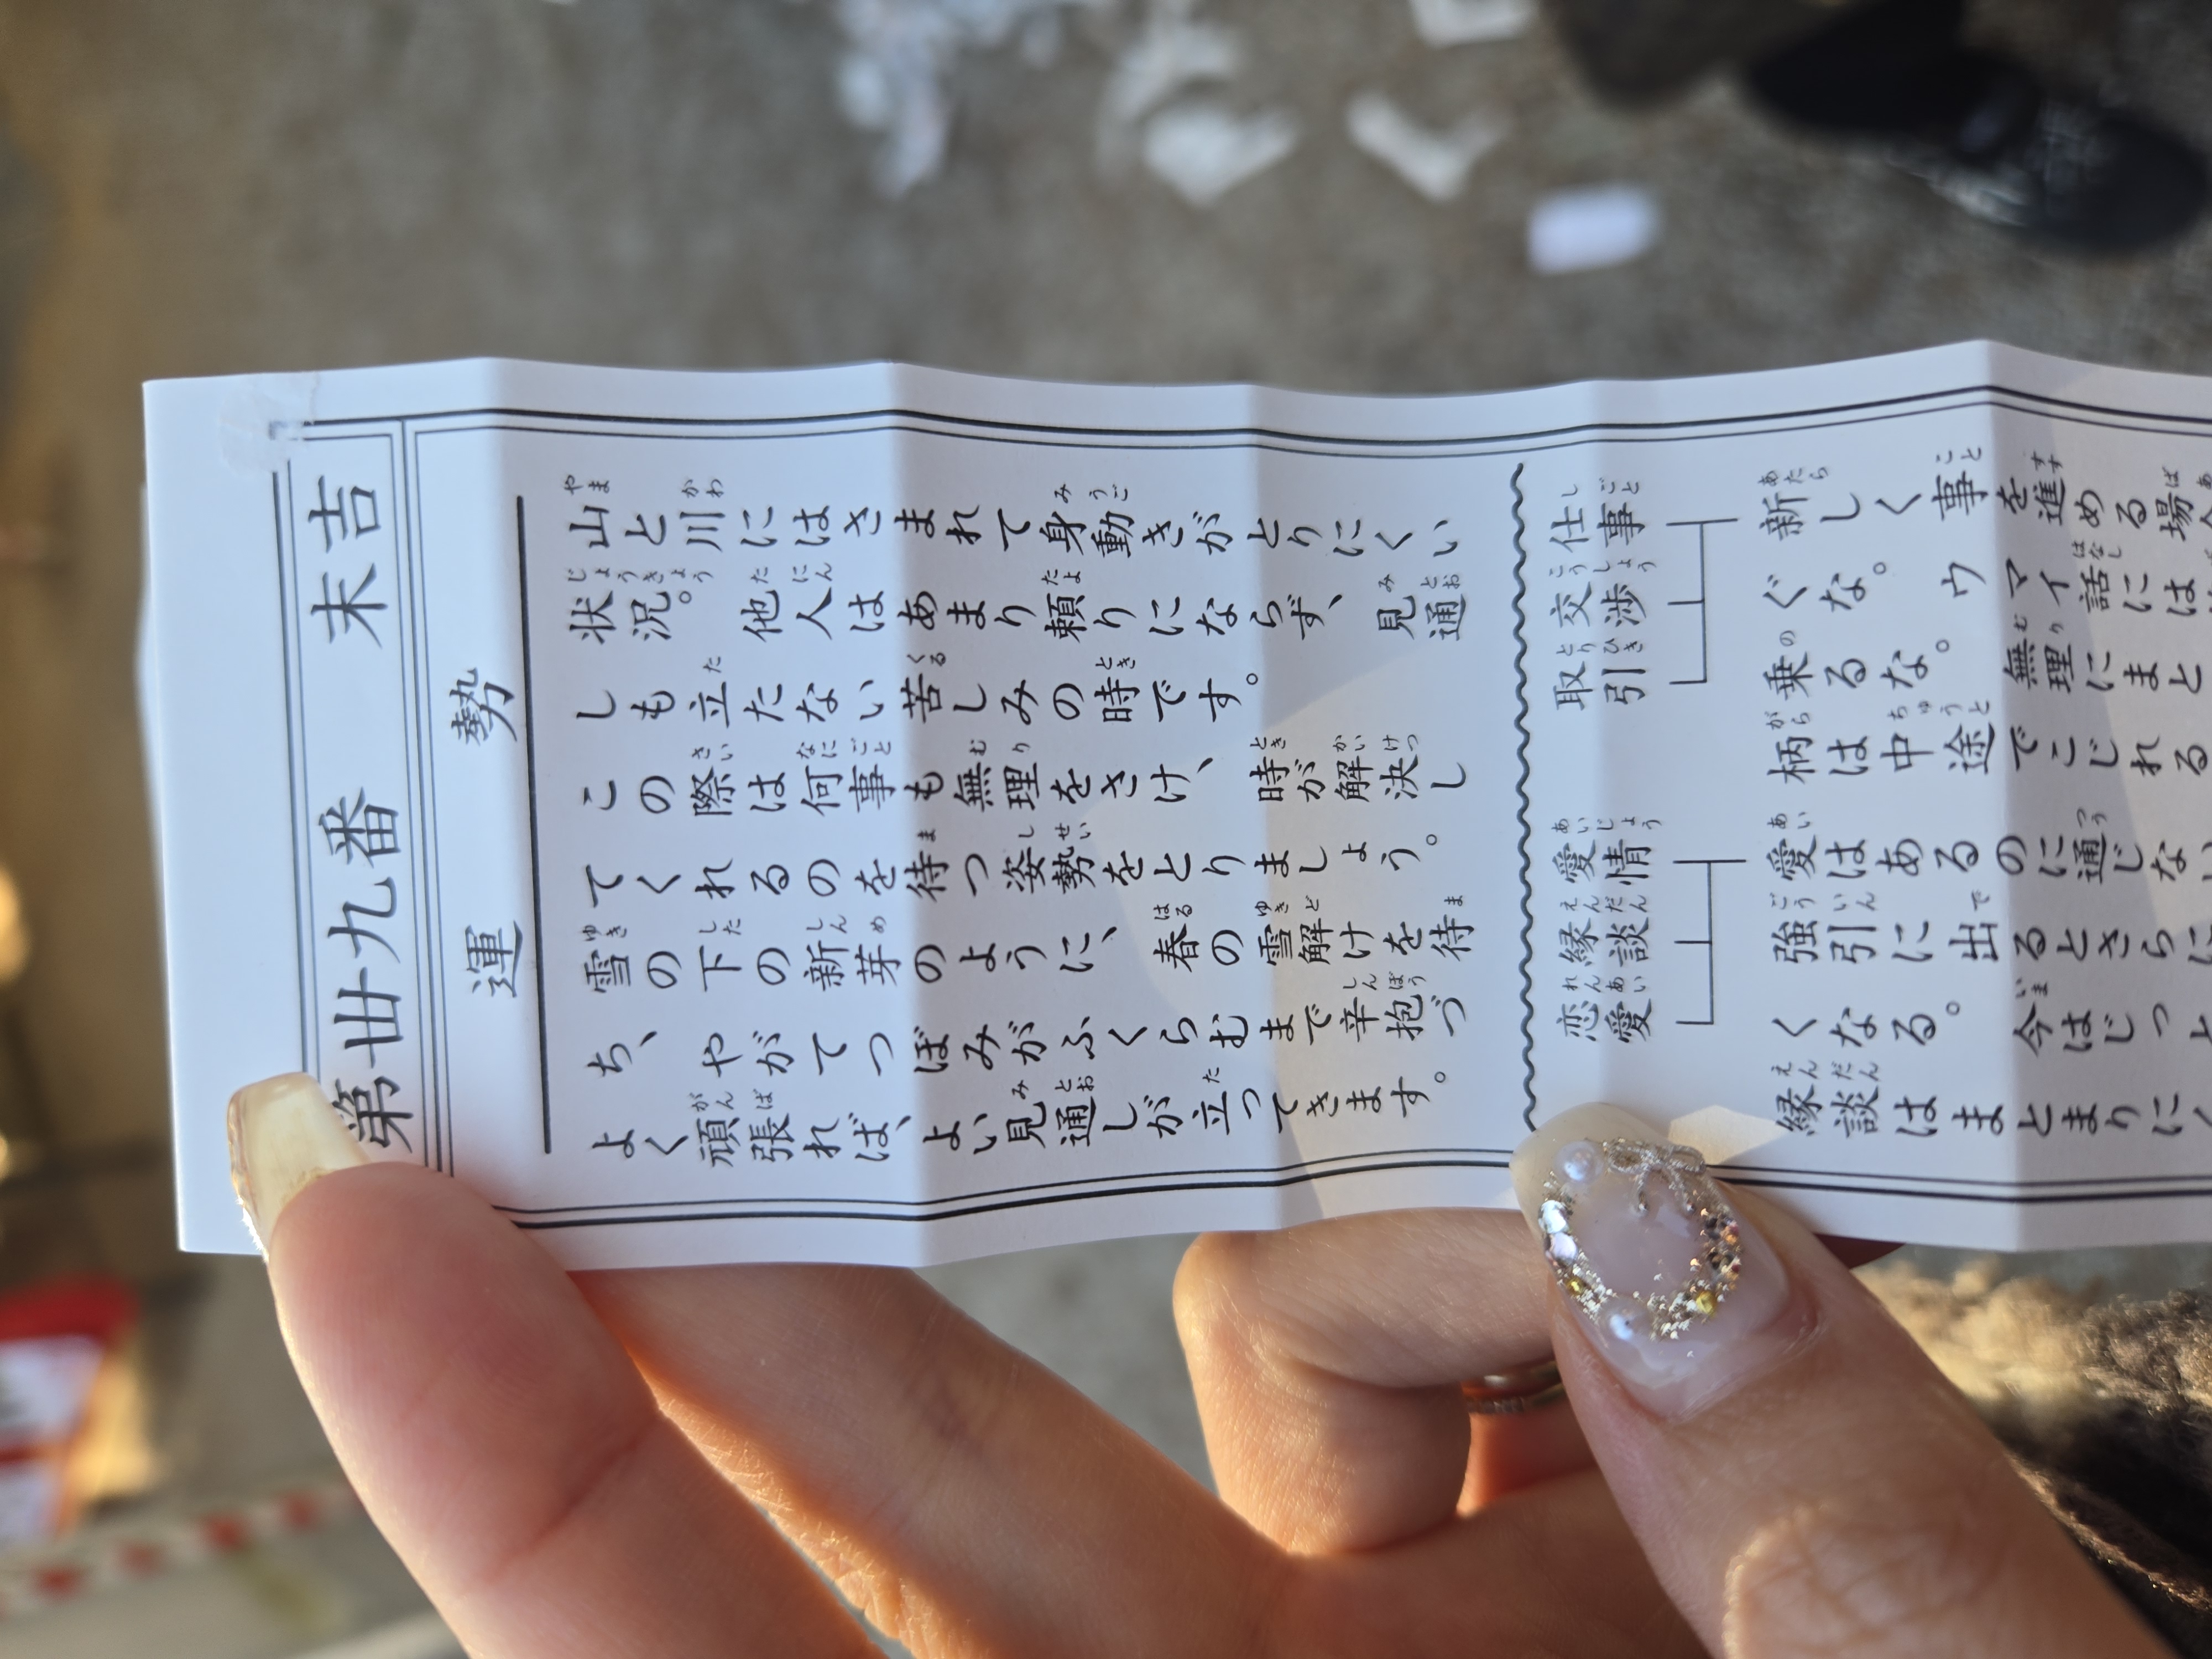 第卅九番 末吉
運勢
山と川にはさまれて身動きがとりにくい
状況。他人はあまり頼りにならず、見通
しも立たない苦しみの時です。
この際は何事も無理をさけ、時が解決し
てくれるのを待つ姿勢をとりましょう。
雪の下の新芽のように、春の雪解けを待
ち、やがてつぼみがふくらむまで辛抱づ
よく頑張れば、よい見通しが立ってきます。
仕事
交渉
取引
新しく事を進める場
ぐな。ウマイ話には
乗るな。無理にまと
柄は中途でこじれる
愛情
縁談
恋愛
愛はあるのに通じない
強引に出るとさらに
くなる。今はじっ
縁談はまとまりにく